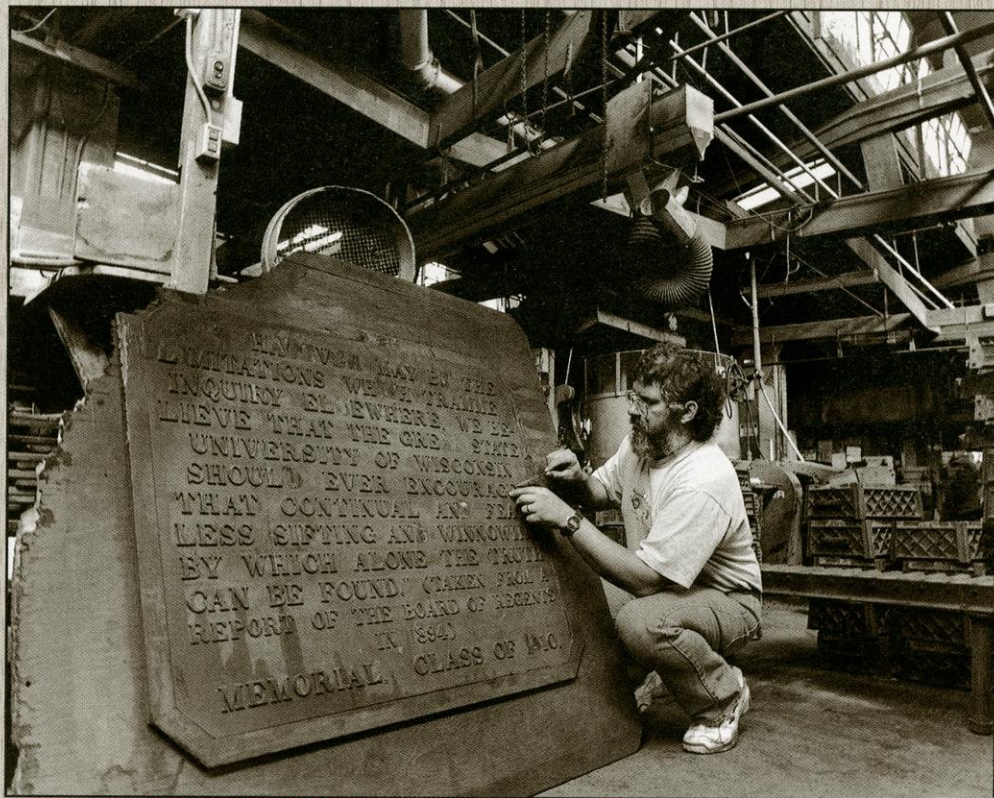 MAY BE THE
LIMITATIONS WHICH TRAMME
INQUIRY ELSEWHERE, WE BE-
LIEVE THAT THE GREAT STATE
UNIVERSITY OF WISCONSIN
SHOULD EVER ENCOURAGE
THAT CONTINUAL AND FEA
LESS SIFTING AND WINNOWI
BY WHICH ALONE THE TRUTH
CAN BE FOUND." (TAKEN FROM A
REPORT OF THE BOARD OF REGENTS
IN 1894)
MEMORIAL, CLASS OF 1910.